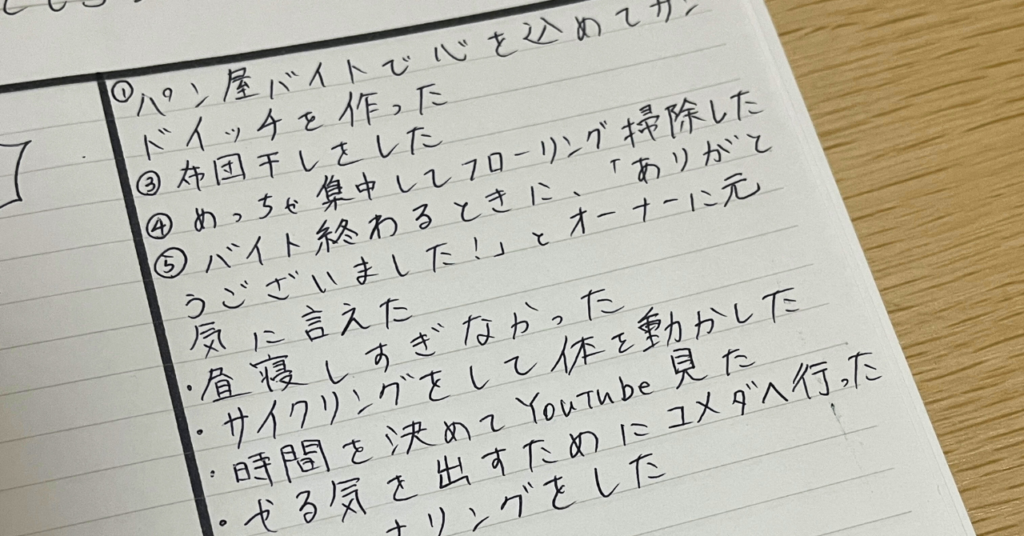 ①パン屋バイトで心を込めてサン
ドイッチを作った
③布団干しをした
④めっちゃ集中してフローリング掃除した
⑤バイト終わるときに、「ありがと
うございました!」とオーナーに元
気に言えた
・昼寝しすぎなかった
・サイクリングをして体を動かした
・時間を決めてYouTube見た
・やる気を出すためにコメダへ行った
リングをした